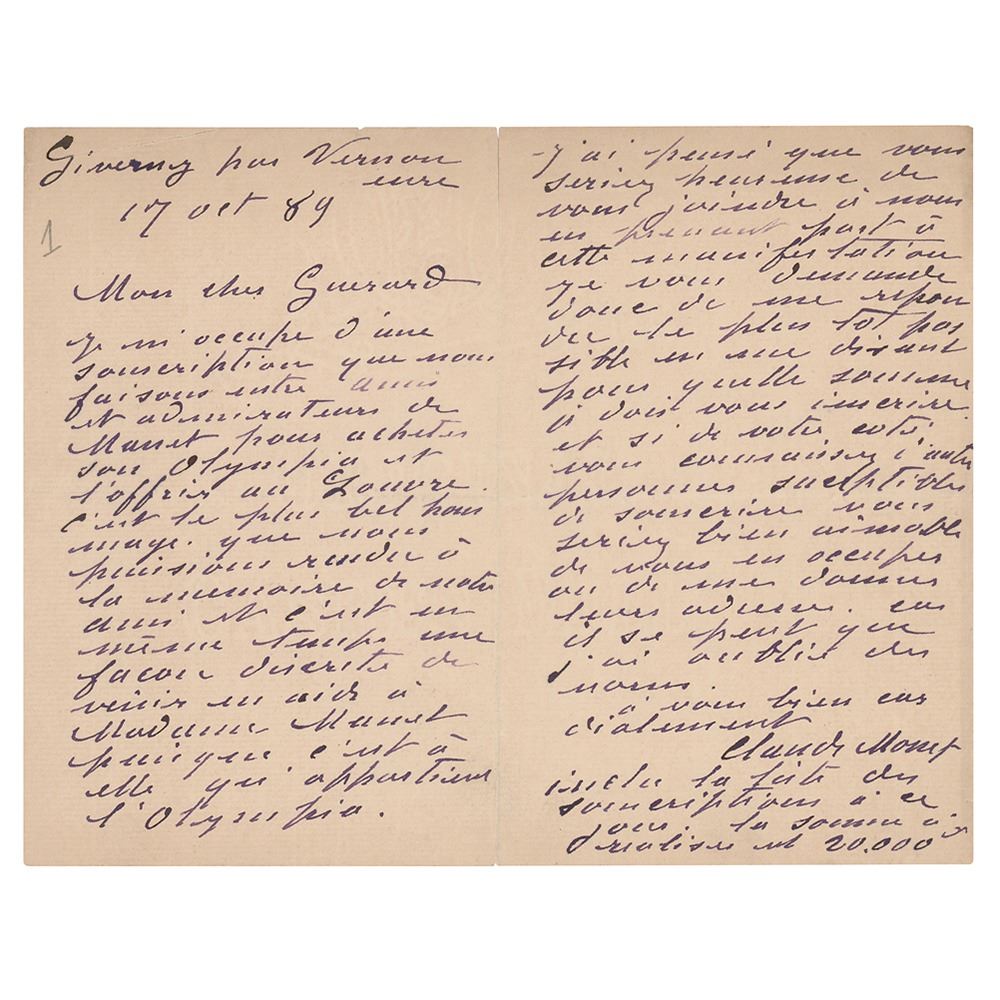 Giverny par Vernon
eure
17 oct 89
1
Mon cher Guerard
Je m'occupe d'une
souscription que nous
faisons entre amis
et admirateurs de
Manet pour acheter
son Olympia et
l'offrir au Louvre.
c'est le plus bel hom
mage. que nous
puissions rendre à
la memoire de notre
ami et c'est en
même temps une
façon discrete de
venir en aide à
Madame Manet
puisque c'est à
elle qu'appartient
l'Olympia.
J'ai pensé que vous
seriez heureuse de
vous joindre à nous
en prenant part à
cette manifestation
je vous demande
donc de me repon
dre le plus tot pos
sible en me disant
pour quelle somme
je dois vous inscrire.
et si de votre coté
vous connaissez d'autres
personnes suceptibles
de souscrire vous
seriez bien aimable
de vous en occuper
ou de me donner
leurs adresses. car
il se peut que
j'ai oublié des
noms.
à vous bien cor
dialement
Claude Monet
inclu la liste des
souscriptions à ce
jour. la somme à
realiser est 20.000 fr